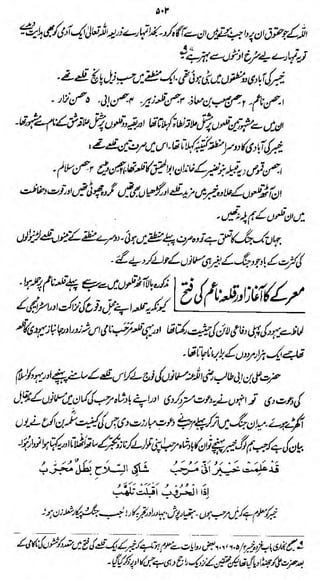 ۵۰۳
اللہ کے جو حقوق ان پر واجب ہوتے ہیں ان سے آگاہ کرو۔ بخدا تمہارے ذریعہ اللہ تعالیٰ ایک آدمی کو بھی ہدایت دیدے
تو یہ تمہارے لیے سُرخ اونٹوں سے بہتر ہے
خیبر کی آبادی دو منطقوں میں بٹی ہوئی تھی، ایک منطقے میں حسب ذیل پانچ قلعے تھے۔
۱۔ حصن ناعم ۲۔ حصن صعب بن معاذ ۳۔ حصن قلعہ زبیر ۴۔ حصن ابی ۵۔ حصن نزار۔
ان میں سے مشہور تین قلعوں پر مشتمل علاقہ نطاۃ کہلاتا تھا اور بقیہ دو قلعوں پر مشتمل علاقہ شق کے نام سے مشہور تھا۔
خیبر کی آبادی کا دوسرا منطقہ کتیبہ کہلاتا تھا۔ اس میں صرف تین قلعے تھے:
۱۔ حصن قموص یہ قبیلہ بنو نضیر کے خاندان ابوالحقیق کا قلعہ تھا ۲۔ حصن وطیح ۳۔ حصن سلالم۔
ان آٹھ قلعوں کے علاوہ خیبر میں مزید قلعے اور گڑھیاں بھی تھیں مگر وہ چھوٹی تھیں اور قوت و حفاظت
میں ان قلعوں کے ہم پلہ نہ تھیں۔
جہاں تک جنگ کا تعلق ہے تو وہ صرف پہلے منطقے میں ہوئی۔ دوسرے منطقے کے تینوں قلعے لڑنے والوں
کی کثرت کے باوجود جنگ کے بغیر ہی مسلمانوں کے حوالے کر دیے گئے۔
معرکے کا آغاز اور قلعہ ناعم کی فتح
مذکورہ بالا آٹھ قلعوں میں سے سب سے پہلے قلعہ ناعم پر حملہ ہوا۔
کیونکہ یہ قلعہ اپنے محل وقوع کی نزاکت اور اسٹراٹیجی کے
لحاظ سے یہود کی پہلی دفاعی لائن کی حیثیت رکھتا تھا اور یہی قلعہ مرحب نامی اس شہ زور اور جانباز یہودی کا قلعہ
تھا جسے ایک ہزار مردوں کے برابر مانا جاتا تھا۔
حضرت علی بن ابی طالب رضی اللہ عنہ مسلمانوں کی فوج لے کر اس قلعے کے سامنے پہنچے اور یہود کو اسلام
کی دعوت دی تو انہوں نے یہ دعوت مسترد کر دی اور اپنے بادشاہ مرحب کی کمان میں مسلمانوں کے مدّمقابل
آ کھڑے ہوئے۔ میدان جنگ میں اتر کر پہلے مرحب نے دعوتِ مبارزت دی جس کی کیفیت سلمہ بن اکوع نے یوں
بیان کی ہے کہ جب ہم لوگ خیبر پہنچے تو ان کا بادشاہ مرحب اپنی تلوار لے کر ناز و تکبر کے ساتھ اٹھلاتا اور یہ کہتا ہوا نمودار ہوا۔
قَدْ عَلِمَتْ خَیْبَرُ اَنِّیْ مَرْحَبُ شَاکِی السِّلَاحِ بَطَلٌ مُجَرَّبُ
اِذَا الْحُرُوْبُ اَقْبَلَتْ تَلَهَّبُ
خیبر کو معلوم ہے کہ میں مرحب ہوں۔ ہتھیار پوش، بہادر اور تجربہ کار! جب جنگ و پیکار شعلہ زن ہو۔
صحیح بخاری باب غزوہ خیبر ۲/۶۰۵، ۶۰۶ بعض روایات سے معلوم ہوتا ہے کہ خیبر کے ایک قلعے کی فتح میں متعدد کوششوں کی ناکامی کے
بعد حضرت علی کو جھنڈا دیا گیا تھا لیکن محققین کے نزدیک راجح وہی ہے جس کا اوپر ذکر کیا گیا۔